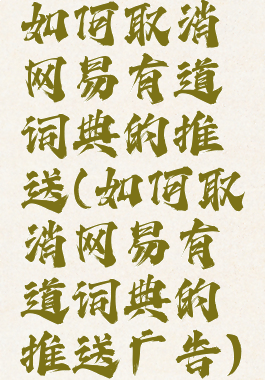 如何取消
网易有道
词典的推
送(如何取
消网易有
道词典的
推送广告)